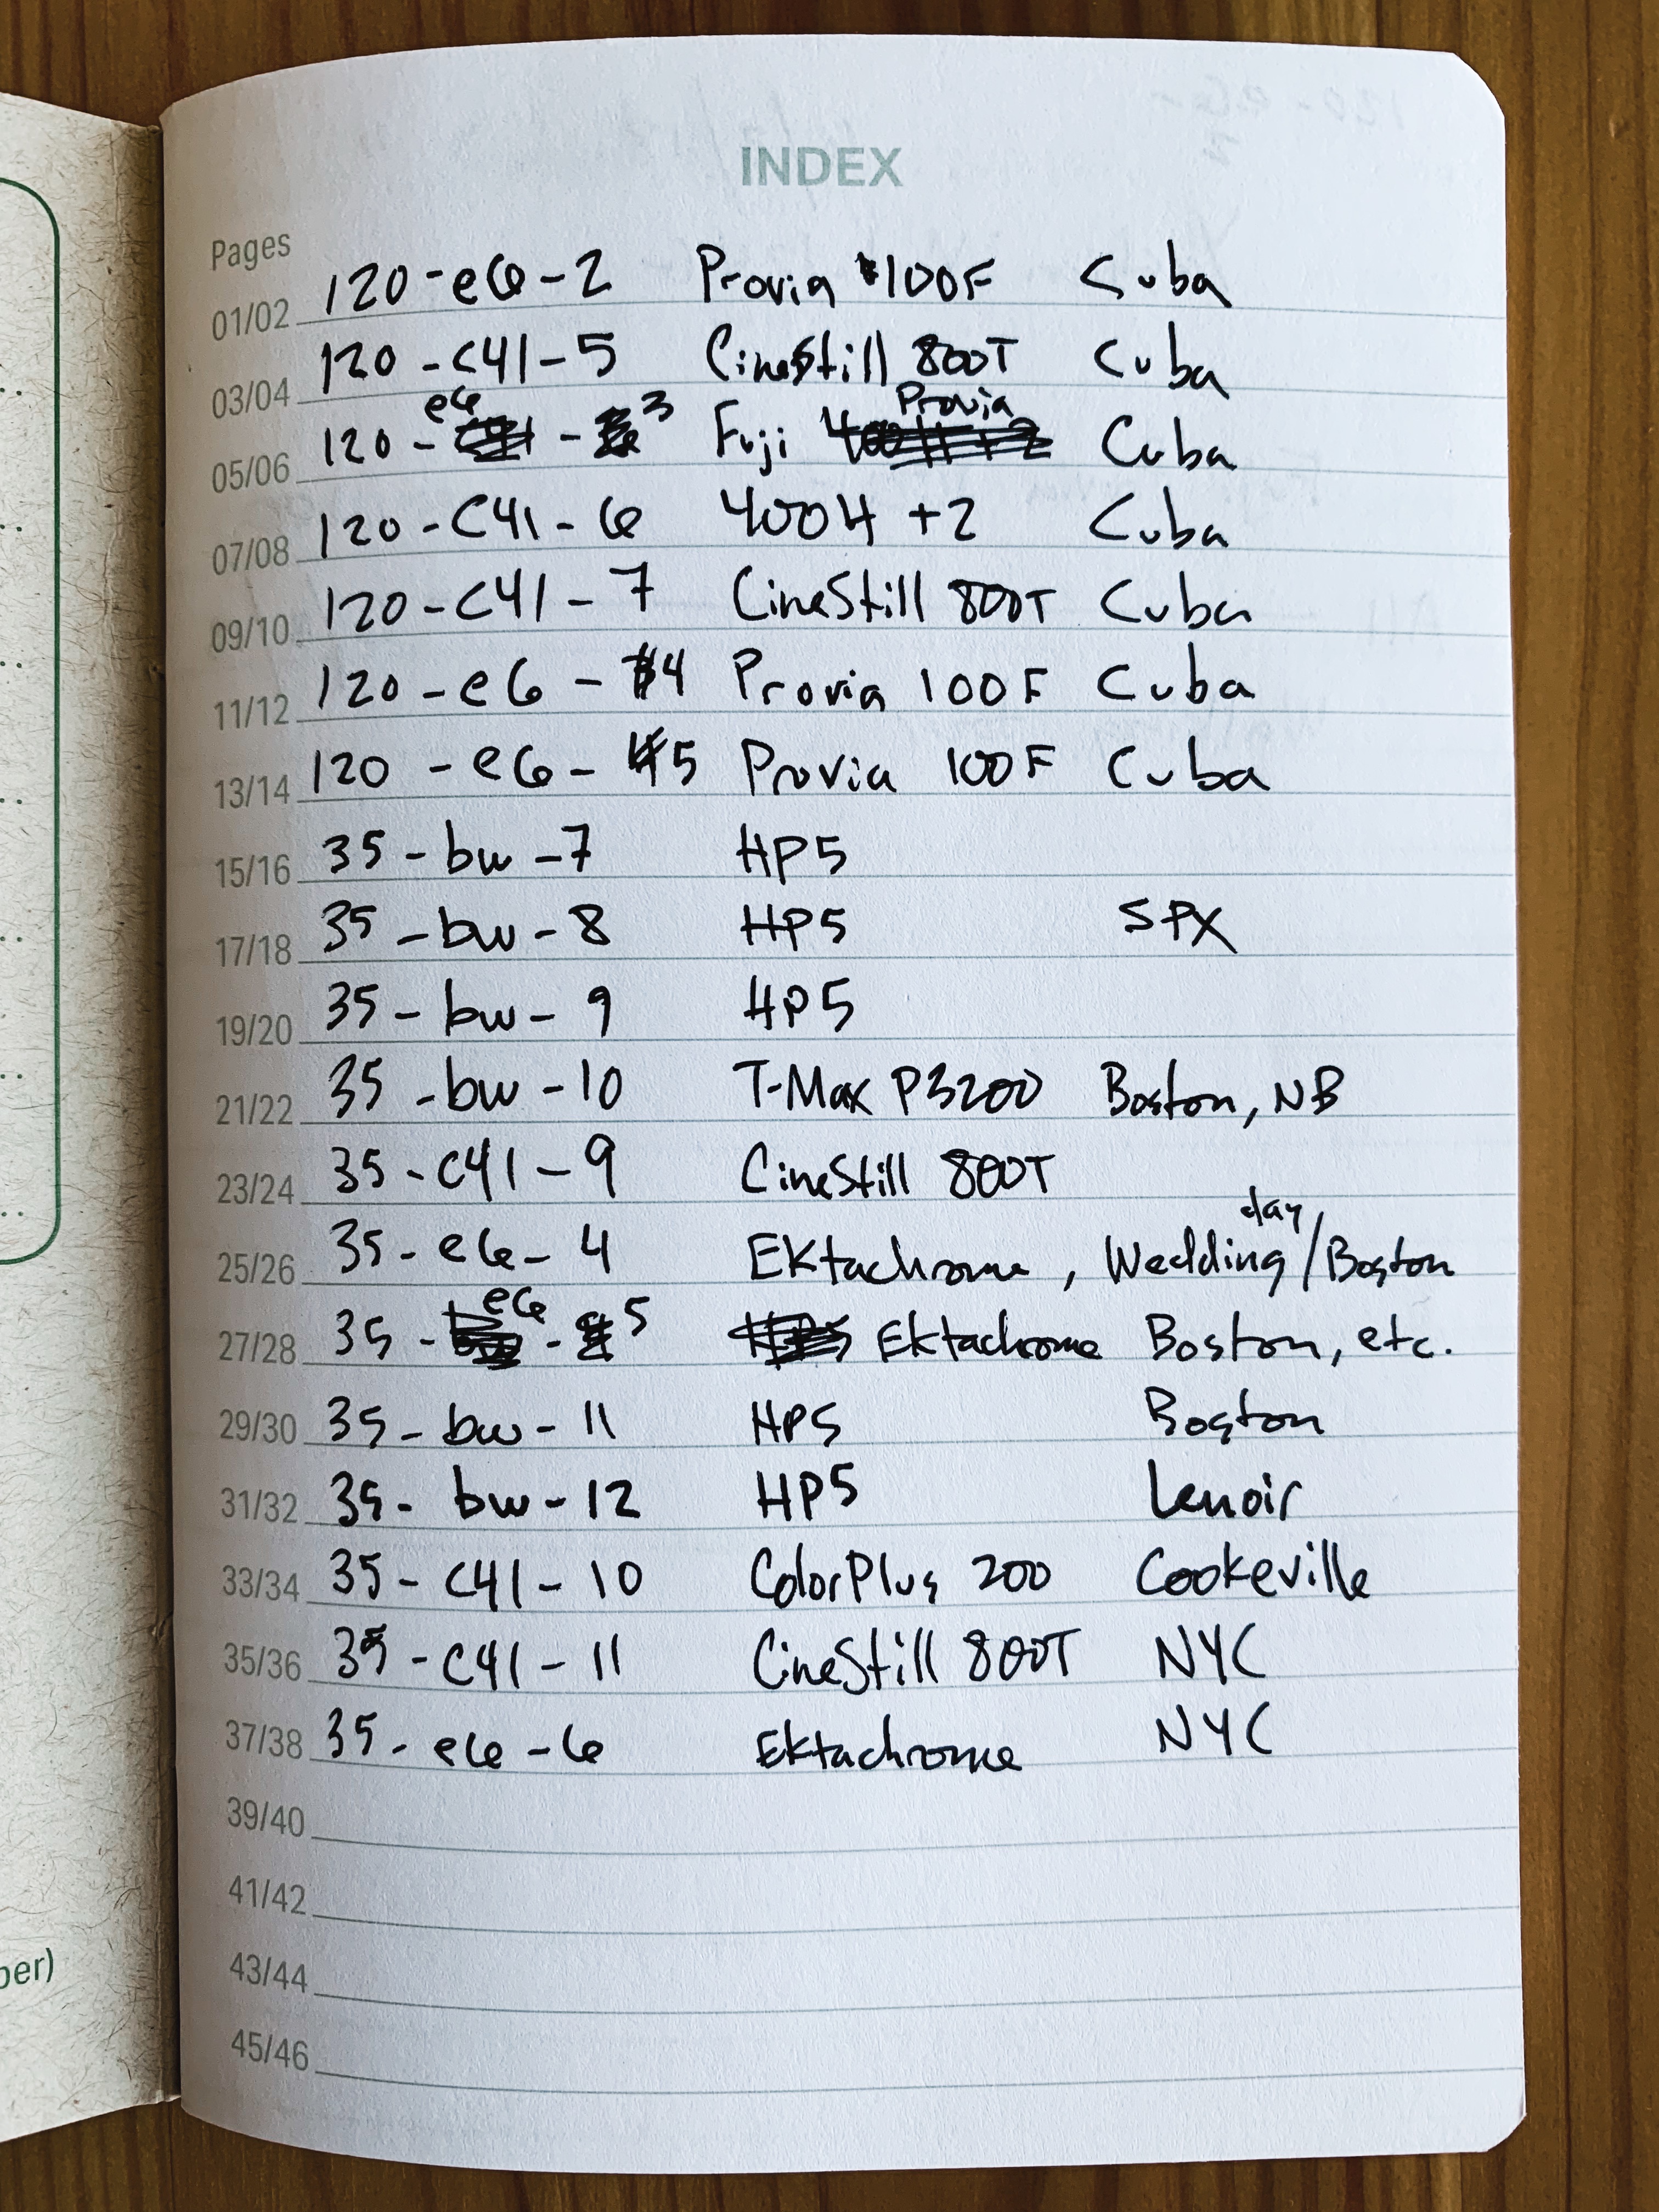 INDEX
Pages
01/02 120-e6-2 Provia 100F Cuba
03/04 120-C41-5 CineStill 800T Cuba
05/06 120-e6-3 Fuji Provia Cuba
07/08 120-C41-6 400H +2 Cuba
09/10 120-C41-7 CineStill 800T Cuba
11/12 120-e6-4 Provia 100F Cuba
13/14 120-e6-5 Provia 100F Cuba
15/16 35-bw-7 HP5
17/18 35-bw-8 HP5 SPX
19/20 35-bw-9 HP5
21/22 35-bw-10 T-Max P3200 Boston, NB
23/24 35-C41-9 CineStill 800T
25/26 35-e6-4 Ektachrome, Wedding day/Boston
27/28 35-e6-5 Ektachrome Boston, etc.
29/30 35-bw-11 HP5 Boston
31/32 35-bw-12 HP5 Lenoir
33/34 35-C41-10 ColorPlus 200 Cookeville
35/36 35-C41-11 CineStill 800T NYC
37/38 35-e6-6 Ektachrome NYC
39/40
41/42
43/44
45/46